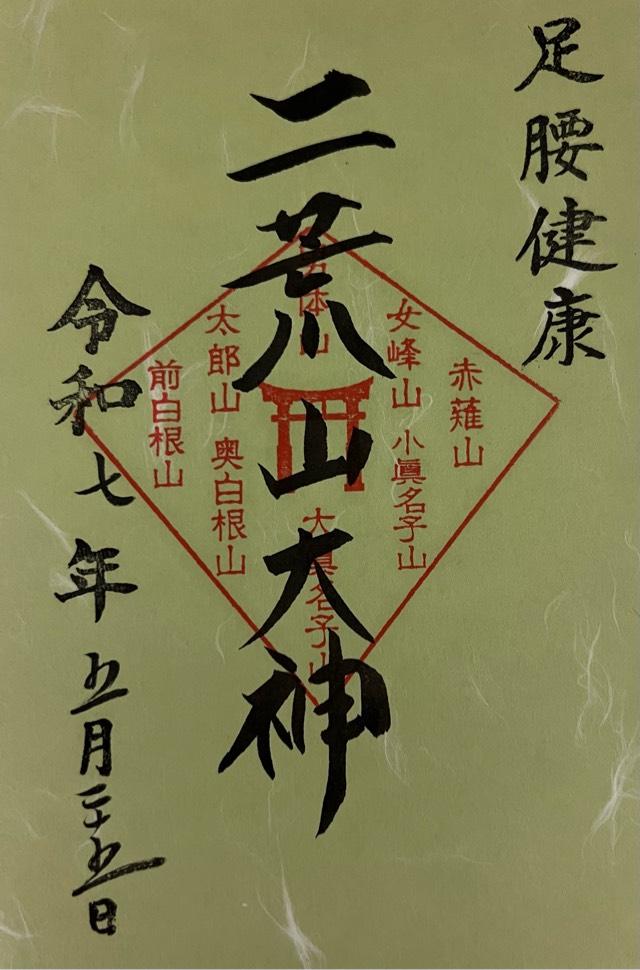 足腰健康
二荒山大神
男体山
女峰山
赤薙山
小眞名子山
大眞名子山
太郎山
奥白根山
前白根山
令和七年五月二十五日